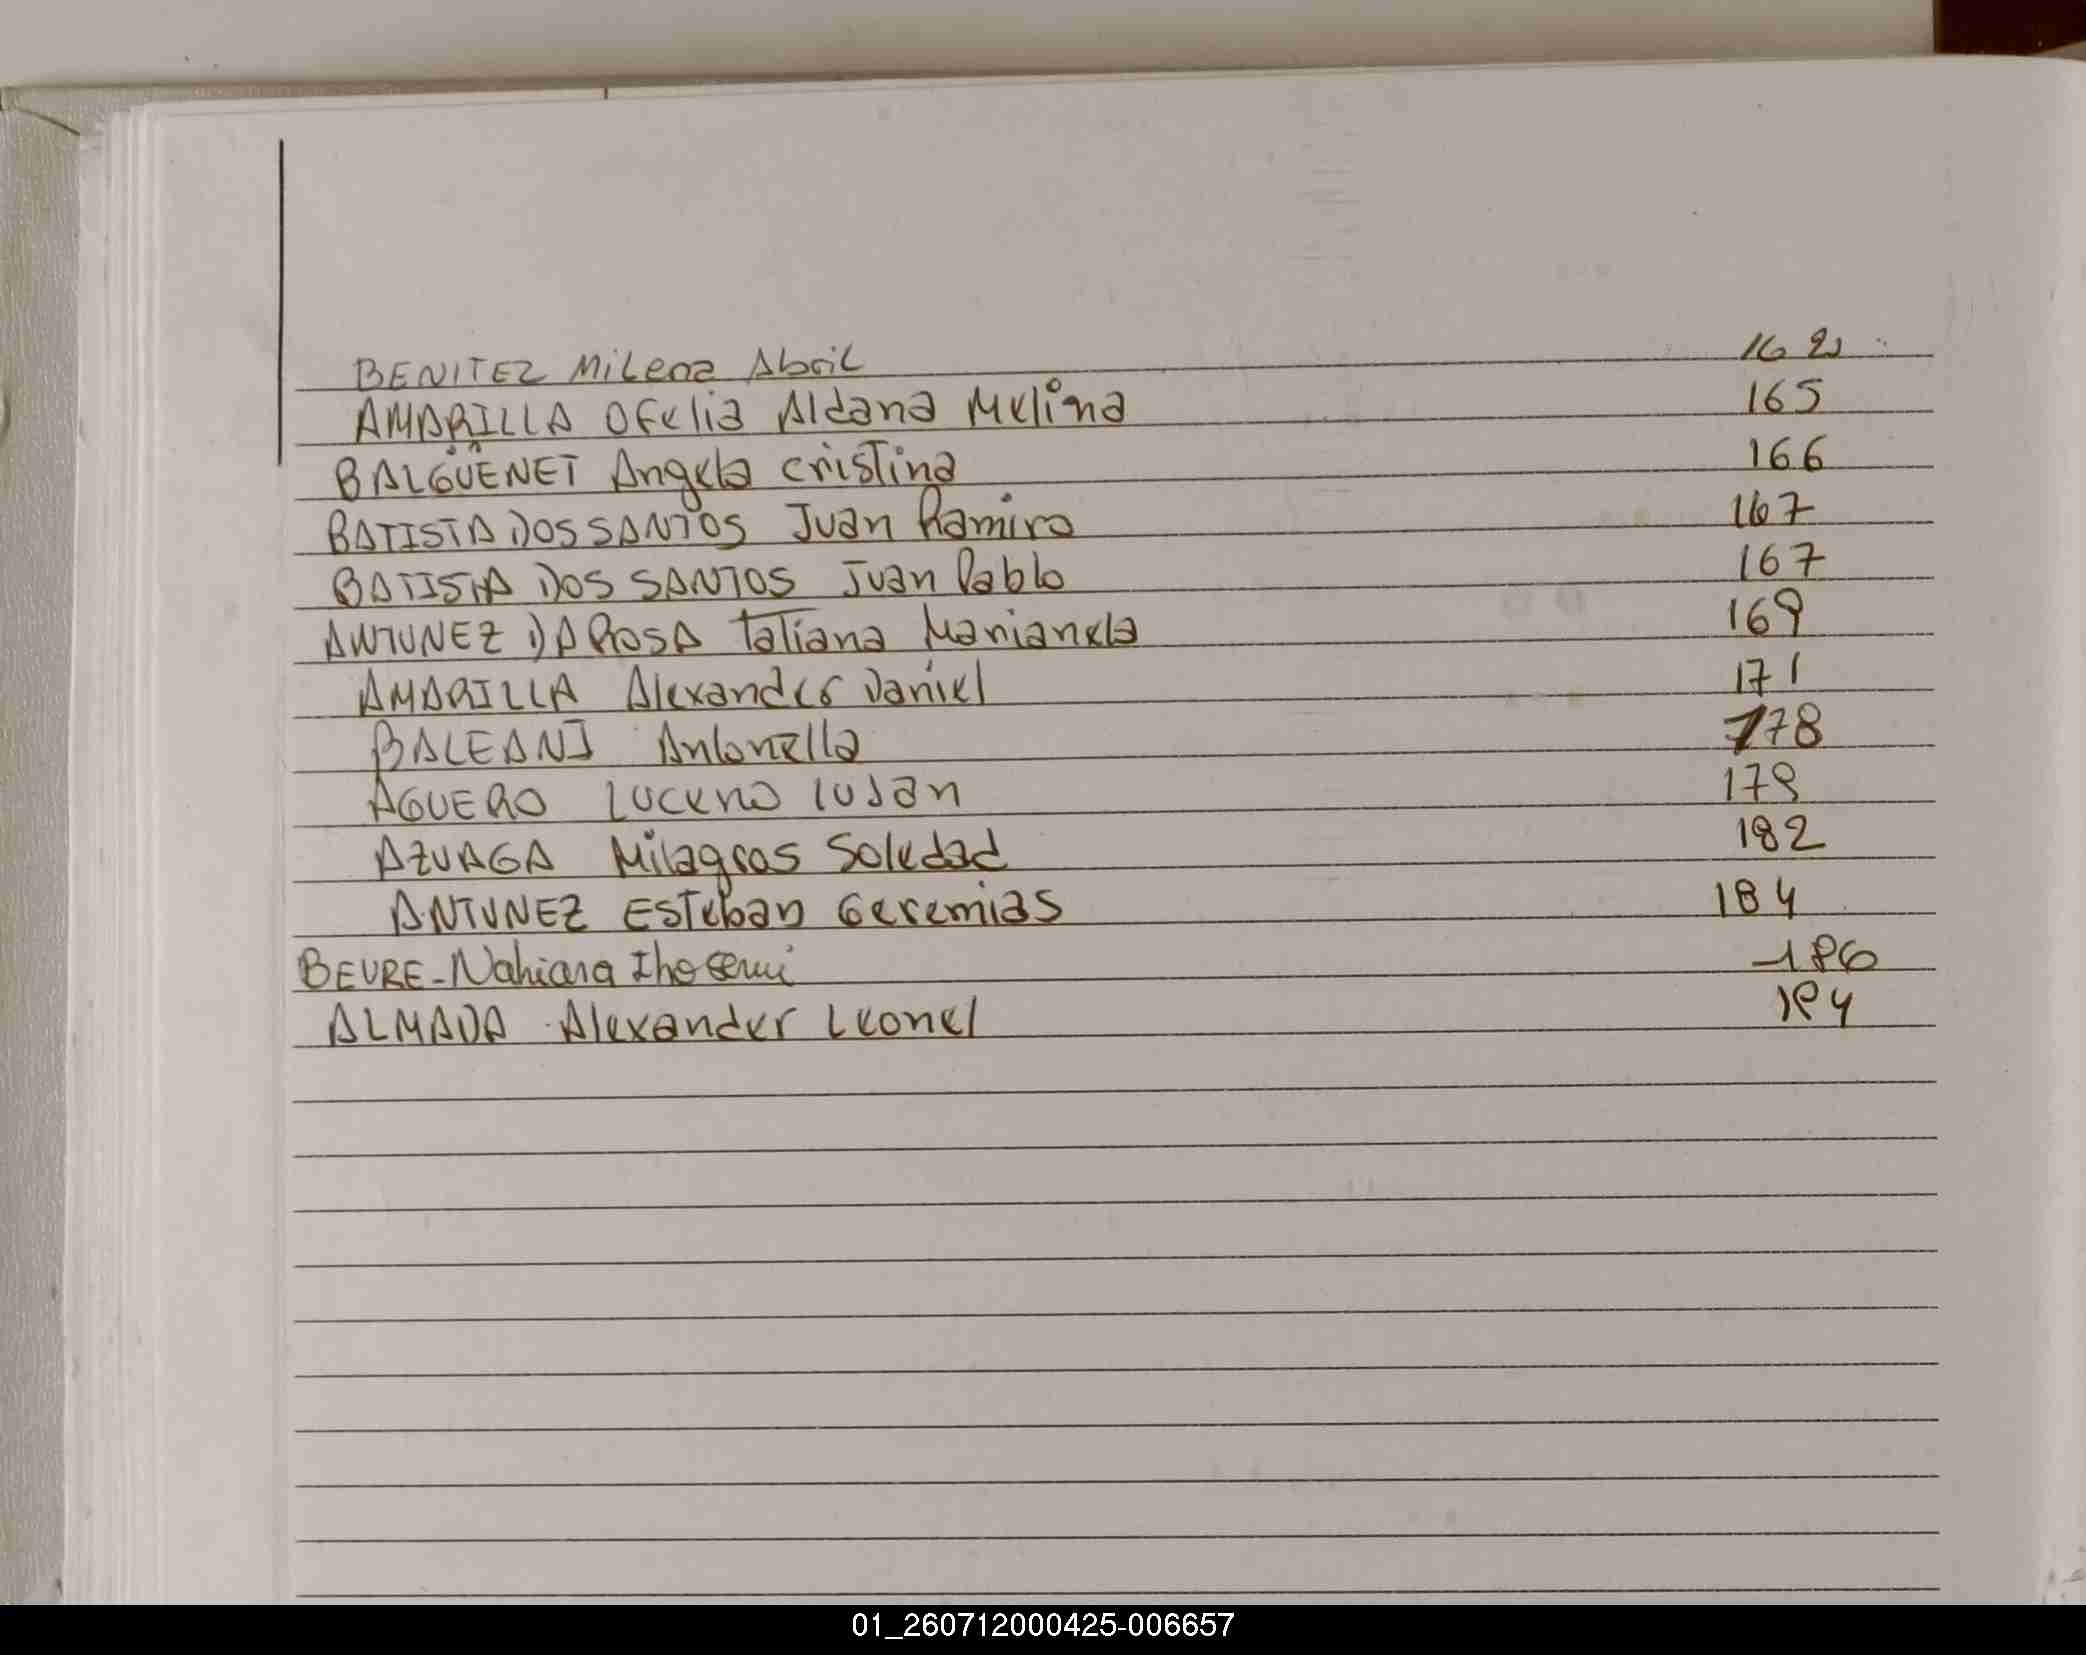 BENITEZ Milena Abril 162
AMARILLA Ofelia Aldana Melina 165
BALGÜENET Angela cristina 166
BATISTA DOS SANTOS Juan Ramiro 167
BATISTA DOS SANTOS Juan Pablo 167
ANTUNEZ DA ROSA Tatiana Marianela 169
AMARILLA Alexander Daniel 171
BALEANI Antonella 178
AGUERO Luceno lujan 179
AZUAGA Milagros Soledad 182
ANTUNEZ Esteban Geremias 184
BEURE-Nahiara 186
ALMADA Alexander Leonel 194
01_260712000425-006657